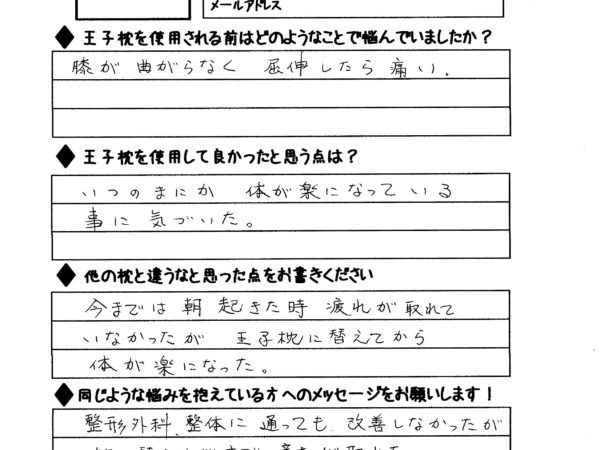 メールアドレス
◆ 王子枕を使用される前はどのようなことで悩んでいましたか？
膝が 曲がらなく 屈伸したら 痛い.
◆ 王子枕を使用して良かったと思う点は？
いつのまにか 体が楽になっている
事に 気づいた。
◆ 他の枕と違うなと思った点をお書きください
今までは 朝 起きた時 疲れが 取れて
いなかったが 王子枕に替えてから
体が楽になった。
◆ 同じような悩みを抱えている方へのメッセージをお願いします！
整形外科、整体に 通っても 改善しなかったが